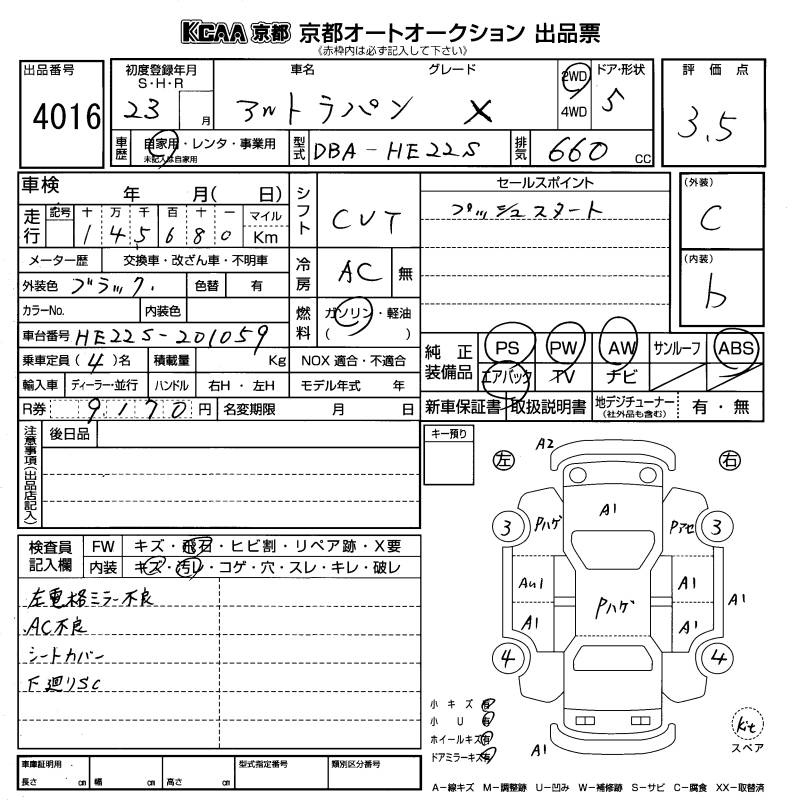 KCAA 京都 京都オートオークション 出品票
《赤枠内は必ず記入して下さい》
出品番号 4016
初度登録年月 S・H・R 23 月
車名 グレード
アルトラパン X
2WD 4WD
ドア・形状 5
評価点 3.5
車歴 自家用・レンタ・事業用 未記入は自家用
型式 DBA-HE22S
排気 660 cc
車検 年 月( 日)
走行 記号 十 万 千 百 十 一 マイル Km
145680
シフト CVT
メーター歴 交換車・改ざん車・不明車
外装色 ブラック 色替 有
冷房 AC 無
カラーNo. 内装色
燃料 ガソリン・軽油 ( )
車台番号 HE22S-201059
乗車定員(4)名 積載量 Kg NOX 適合・不適合
輸入車 ディーラー・並行 ハンドル 右H・左H モデル年式 年
R券 9170 円 名変期限 月 日
セールスポイント
プッシュスタート
(外装) C
(内装) b
純正装備品 PS PW AW サンルーフ ABS
エアバック TV ナビ
新車保証書 取扱説明書 地デジチューナー (社外品も含む) 有・無
注意事項(出品店記入) 後日品
キー預り
検査員記入欄 FW キズ・飛石・ヒビ割・リペア跡・X要
内装 キズ・汚レ・コゲ・穴・スレ・キレ・破レ
左電格ミラー不良
AC不良
シートカバー
下廻りSC
左 右
A2
A1
3 Pハゲ Pアセ 3
AU1 A1
A1
Pハゲ
A1 A1
4 4
A1
小キズ 有
小U 有
ホイールキズ 有
ドアミラーキズ 有
kit
スペア
車庫証明用 長さ cm 幅 cm 高さ cm 型式指定番号 類別区分番号
A―線キズ M―調整跡 U―凹み W―補修跡 S―サビ C―腐食 XX―取替済